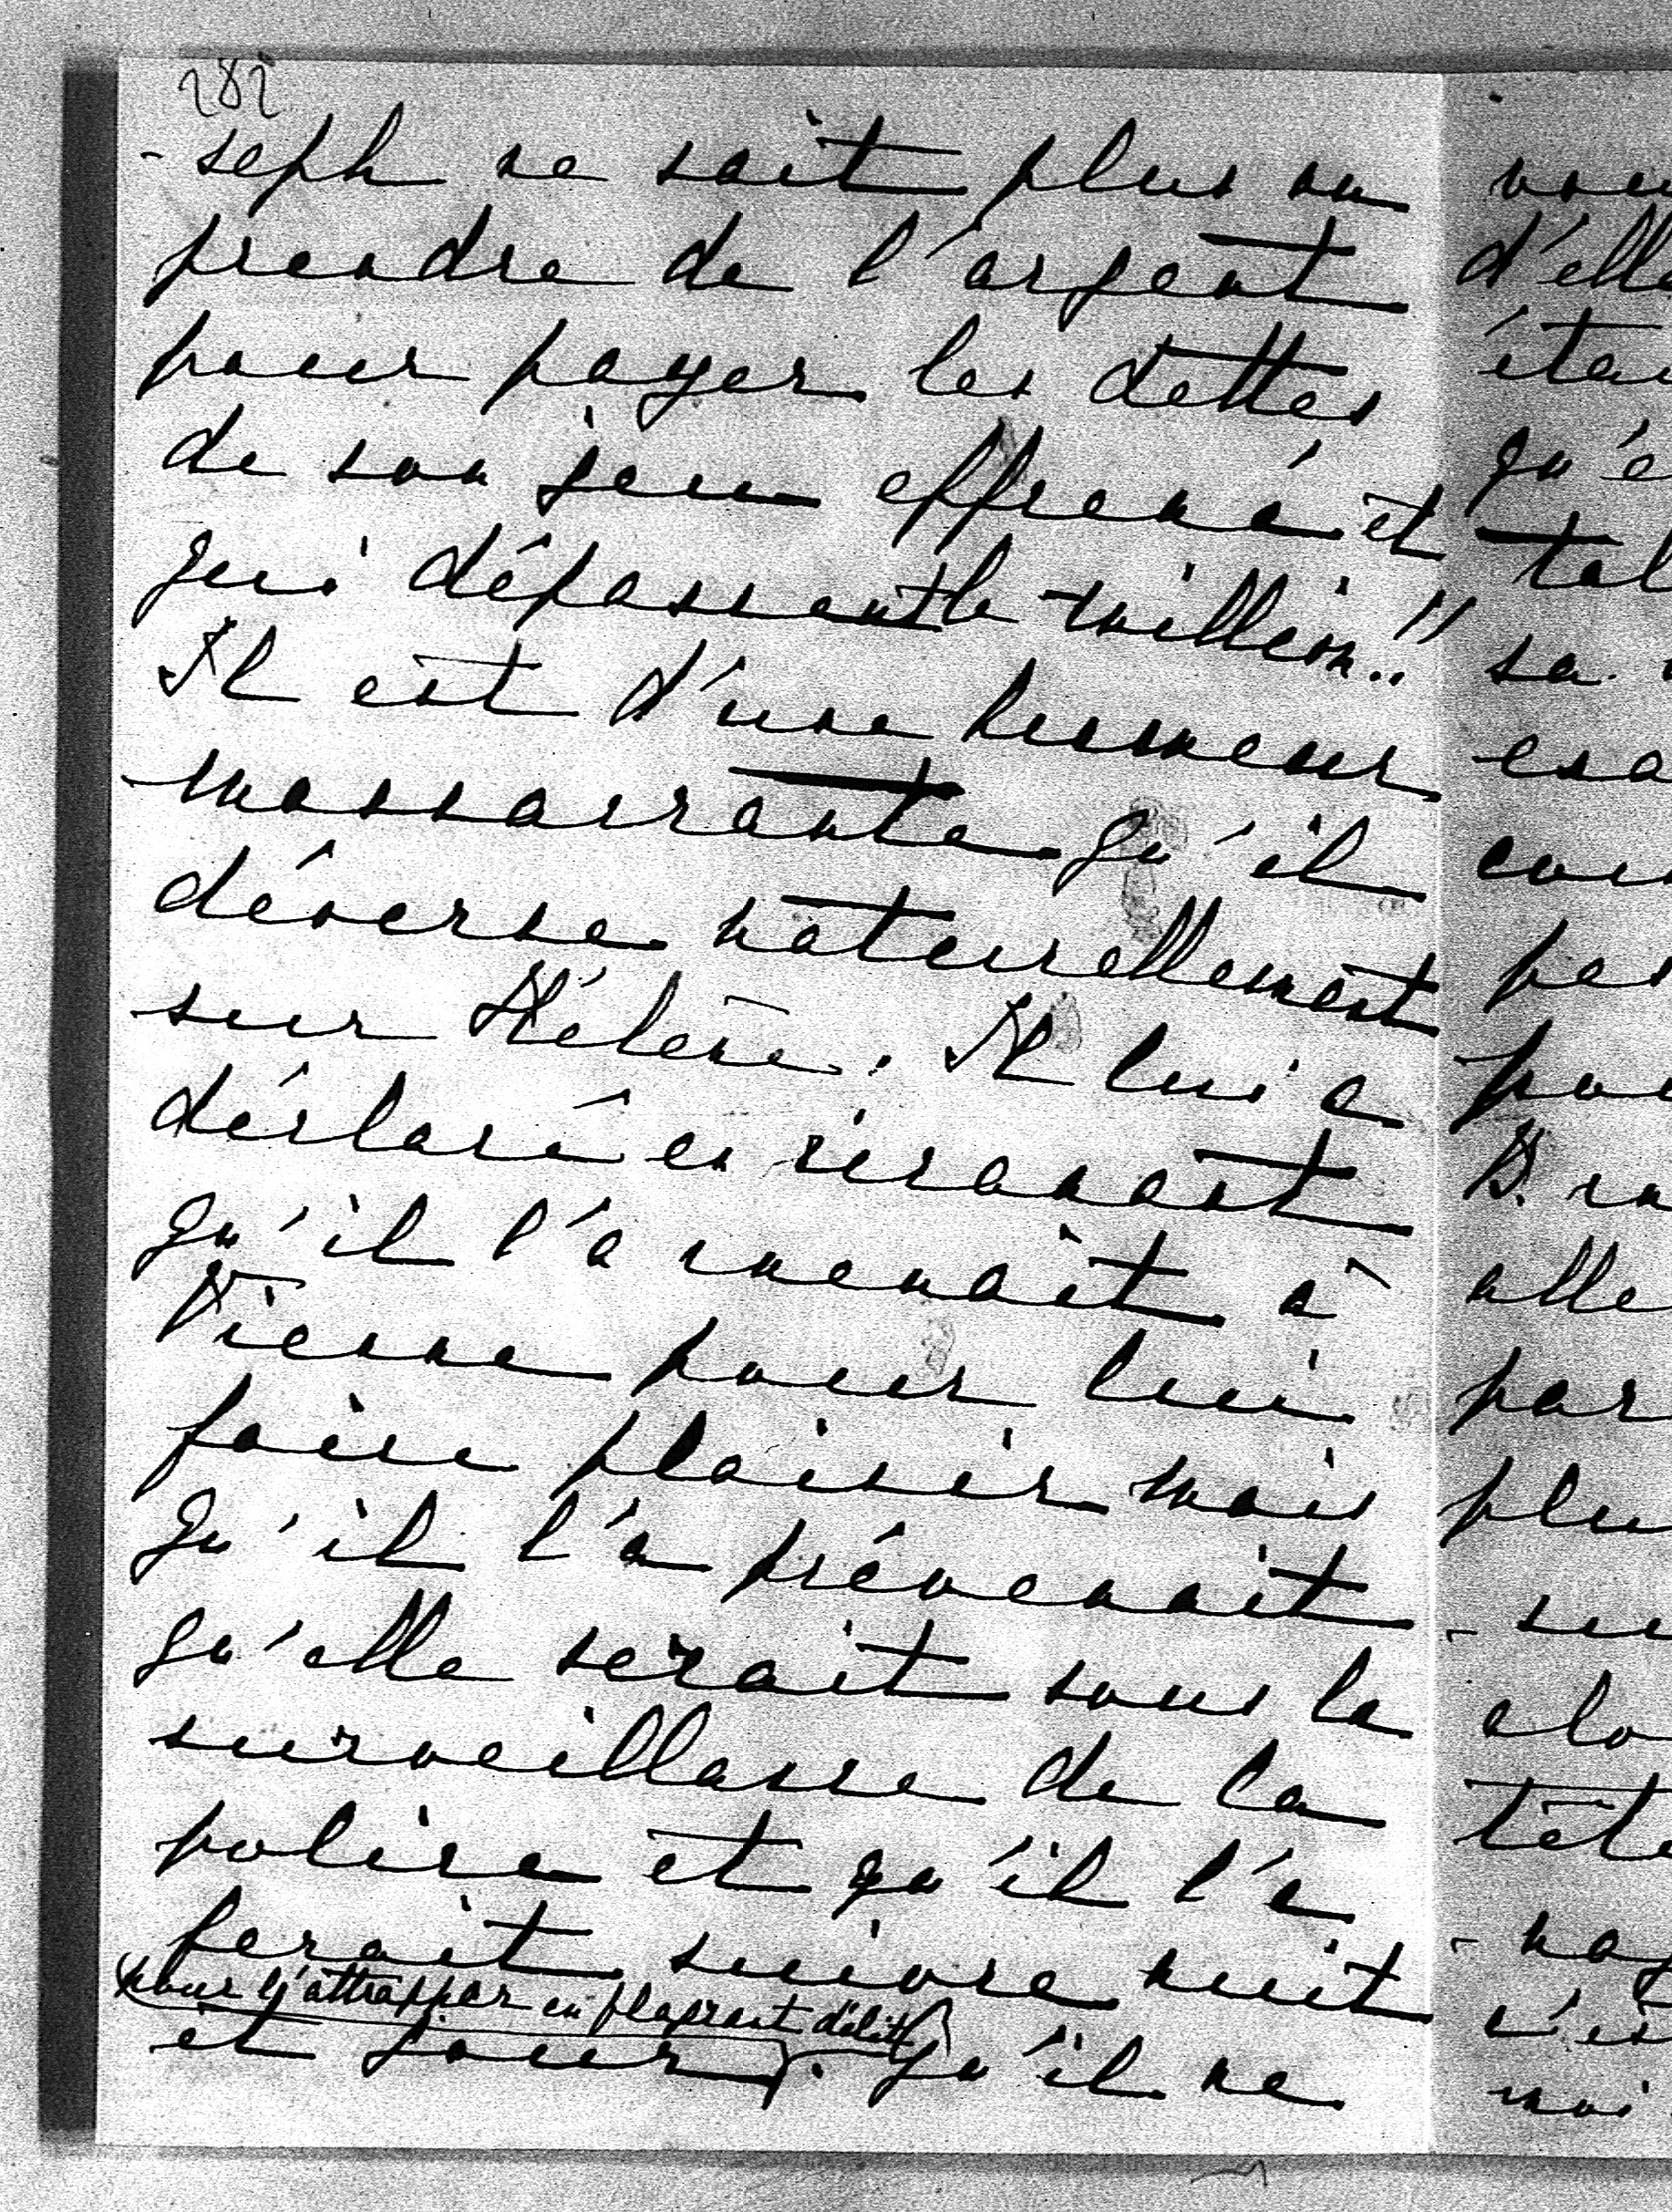 282
-seph ne sait plus ou
prendre de l'argent
pour payer les dettes
de son jeu effrené et
qui dépassent le million!!
Il est d'une humeur
massacrante qu'il
déverse naturellement
sur Hélène. Il lui a
déclaré en ricanant
qu'il l'a menait à
Vienne pour lui
faire plaisir mais
qu'il l'a prévenait
qu'elle serait sous la
surveillance de la
police et qu'il l'a
ferait suivre nuit
pour l'attrapper en flagrant délit
et jour. qu'il ne
d'elle
qu'e
sa
par
moi